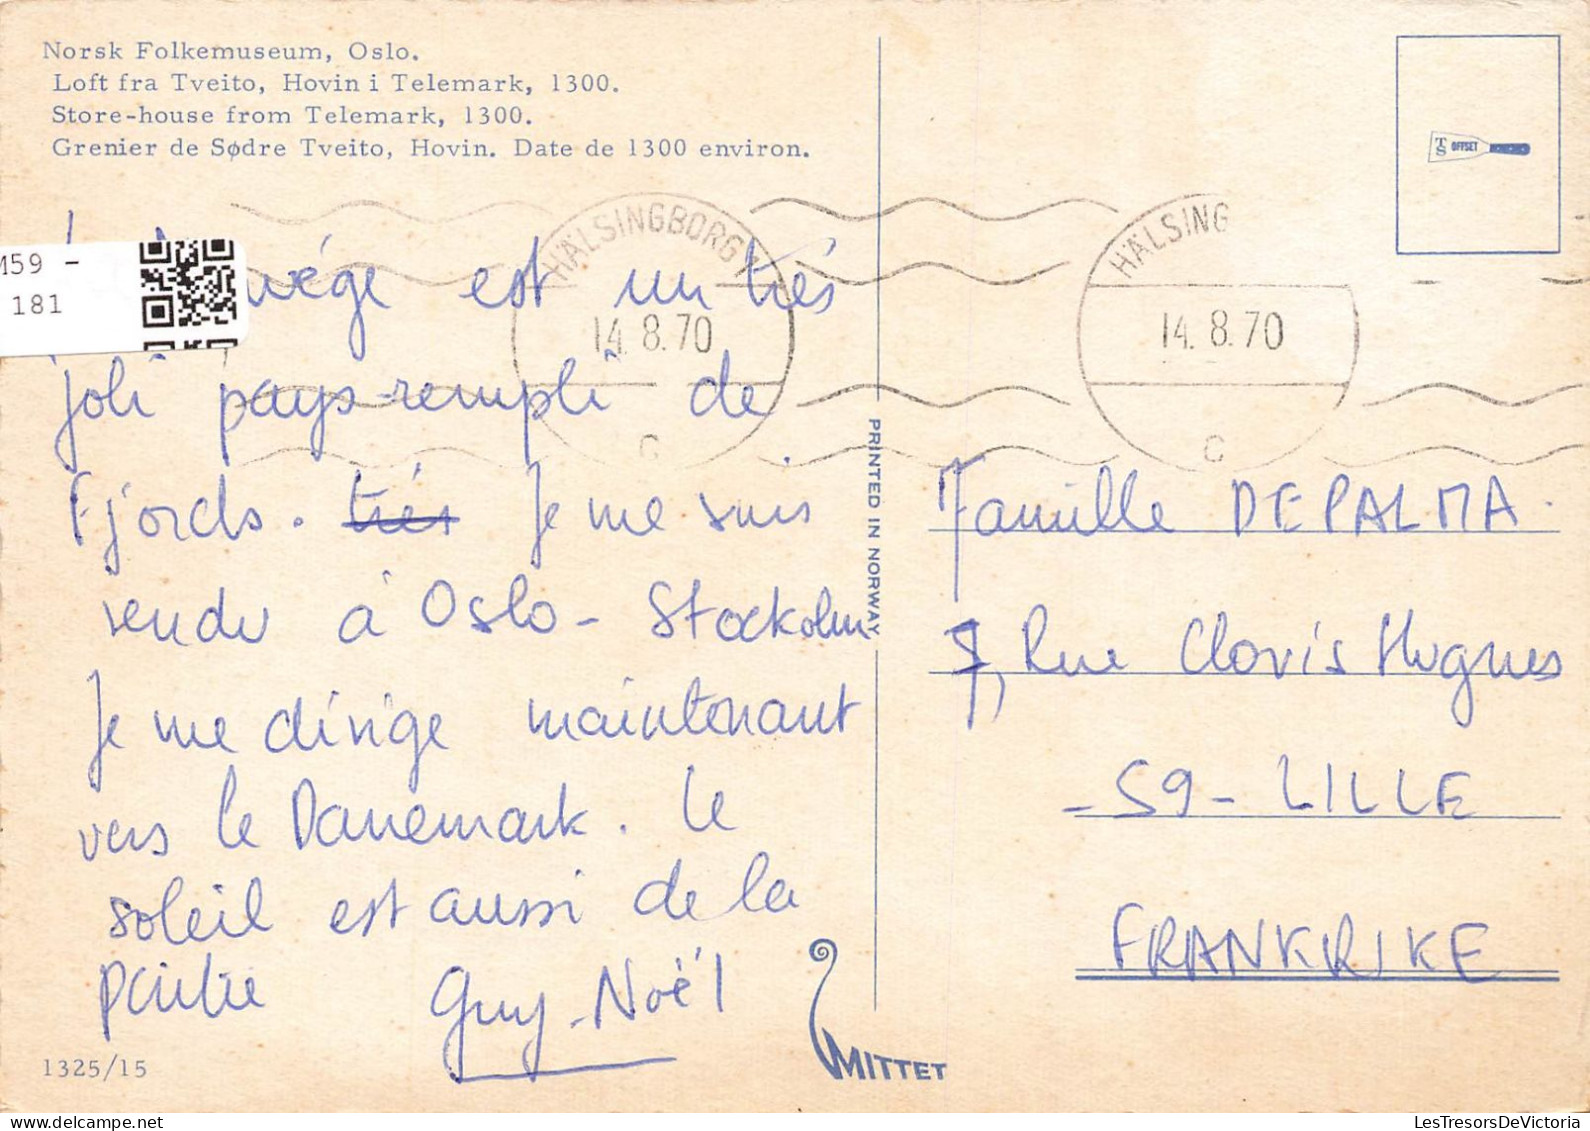 Norsk Folkemuseum, Oslo.
Loft fra Tveito, Hovin i Telemark, 1300.
Store-house from Telemark, 1300.
Grenier de Sødre Tveito, Hovin. Date de 1300 environ.
TS OFFSET
M59 -
181
HÄLSINGBORG 1
14.8.70
C
HÄLSING
14.8.70
C
vége est un trés
joli pays rempli de
Fjords. trés Je me suis
rendu à Oslo - Stockolm
Je me dirige maintenant
vers le Danemark. Le
soleil est aussi de la
partie Guy-Noël
PRINTED IN NORWAY
Famille DEPALMA.
7, Rue Clovis Hugues
- 59 - LILLE
FRANKRIKE
1325/15
MITTET
LesTresorsDeVictoria